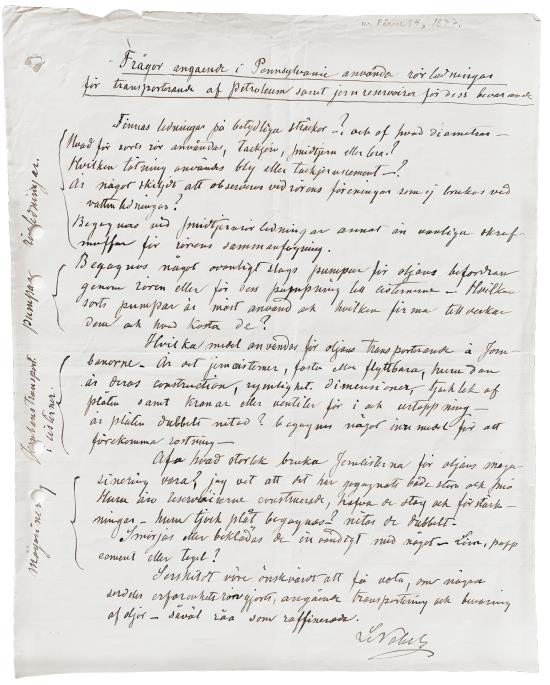 Frågor angaende i Pennsylvanie använda rörledningar
för transporterande af Petroleum samt jern reservoirer för dess bevarande
Finnas ledningar på betydliga sträckor —? och af hvad diameter —
Hvad för sorts rör användas, tackjern, smidtjern eller bra?
Hvilken tätning användes bly eller tackjernscement —?
Är något skiljdt att observera vid rörens föreningar som ej brukas vid
vattenledningar?
Begagnas vid smidtjernsrörledningar annat än vanliga skruf-
muffar för rörens sammanfogning.
Begagnas något ovanligt slags pumpar för oljans befordran
genom rören eller för dess pumpning till cisternerne — Hvilken
sorts pumpar är mäst använd och hvilken firma tillverkar
dem och hvad kosta de?
Hvilka medel användas för oljans transporterande å Jern-
banorne — Är det jerncisterner, fasta eller flyttbara, huru dan
är deras construction, rymlighet, dimensioner, tjocklek af
plåten samt kranar eller ventiler för i och urtappning —
är plåten dubbelt nitad? begagnas något medel för att
förekomma rostning —
Af hvad storlek bruka Jerncisterna för oljans maga-
sinering vara? jag vet att det här begagnats både stora och små
Huru äro reservoirerne construerade, hafva de stag och förstärk-
ningar — huru tjock plåt begagnas? nitas de dubbelt —
Smörjas eller beklädas de invändigt med något — Lim, papp
cement eller tegel?
Serskildt vore önskvärdt att få veta, om några
serskilda erfarenhetsrön gjorts, angående transportering och bevaring
af oljor — såväl råa som raffinerade.
L Nobel
rörledningar.
pumpar
Jernbanstransport
i cisterner.
Magasiner